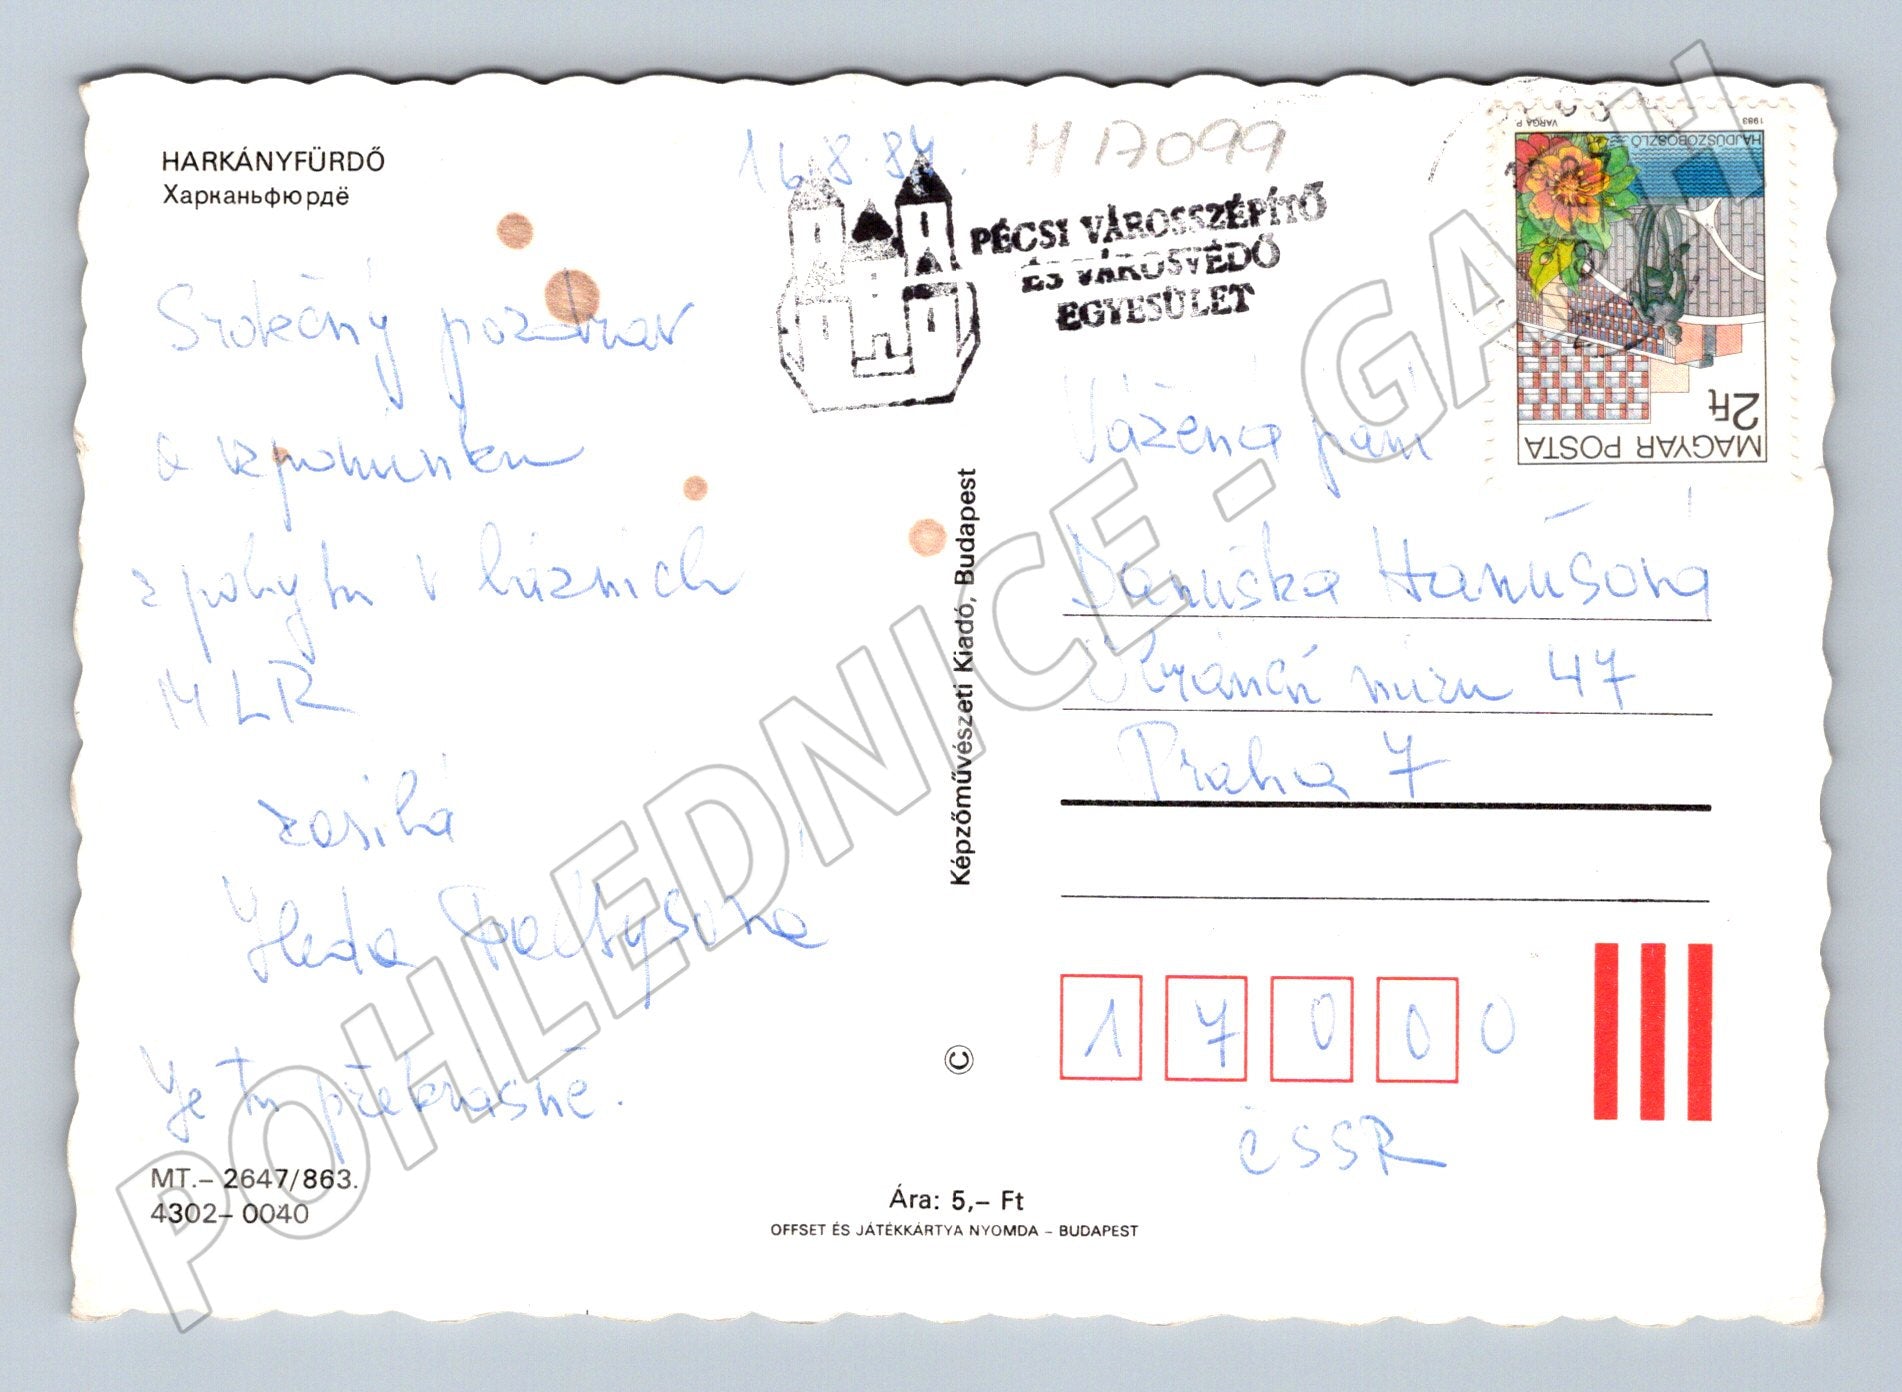 HARKÁNYFÜRDŐ
Харканьфюрдё
16.8.84.
MA099
PÉCSI VÁROSSZÉPÍTŐ
ÉS VÁROSVÉDŐ
EGYESÜLET
1983
VARGA P.
HAJDÚSZOBOSZLÓ
2Ft
MAGYAR POSTA
Srdečný pozdrav
a vzpomínku
z pobytu v lázních
MLR
zasílá
Je tu překrásně.
Vážená paní
Danuška Hanušová
Obránců míru 47
Praha 7
17000
ČSSR
Képzőművészeti Kiadó, Budapest
©
MT.– 2647/863.
4302–0040
Ára: 5,– Ft
OFFSET ÉS JÁTÉKKÁRTYA NYOMDA – BUDAPEST
POHLEDNICE - GA